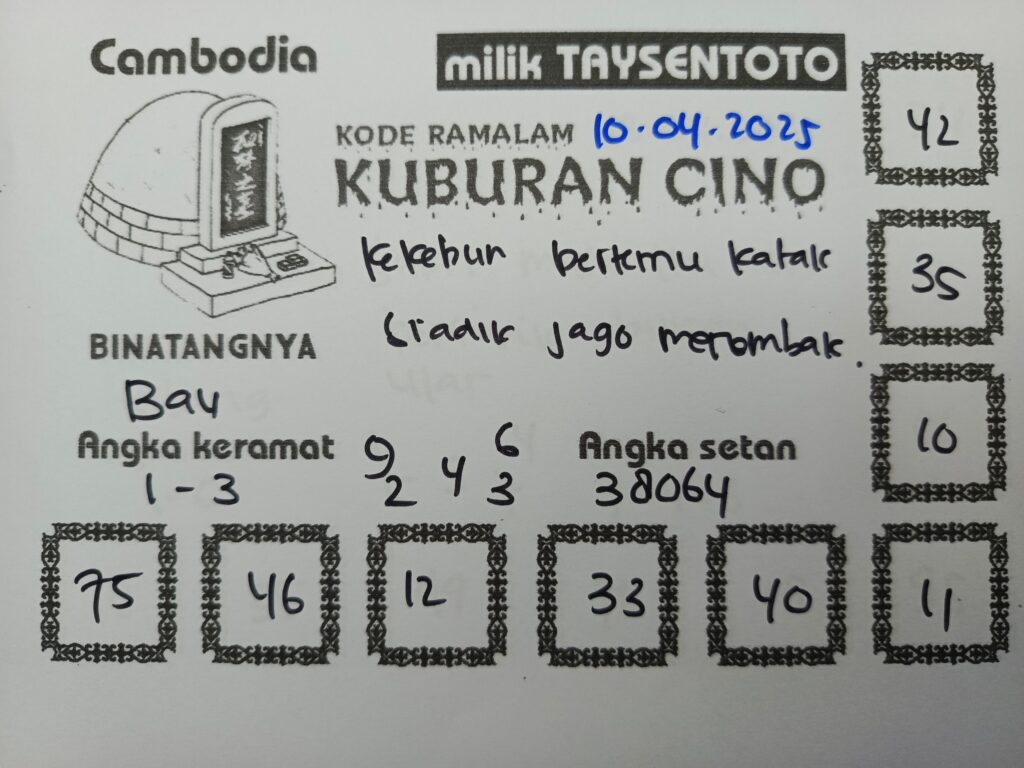 Cambodia
milik TAYSENTOTO
KODE RAMALAM 10.04.2025
KUBURAN CINO
kekebun bertemu katak
siadik jago merombak.
BINATANGNYA
Bay
Angka keramat
1 - 3
9 6
2 4 3
Angka setan
38064
42
35
10
75 46 12 33 40 11